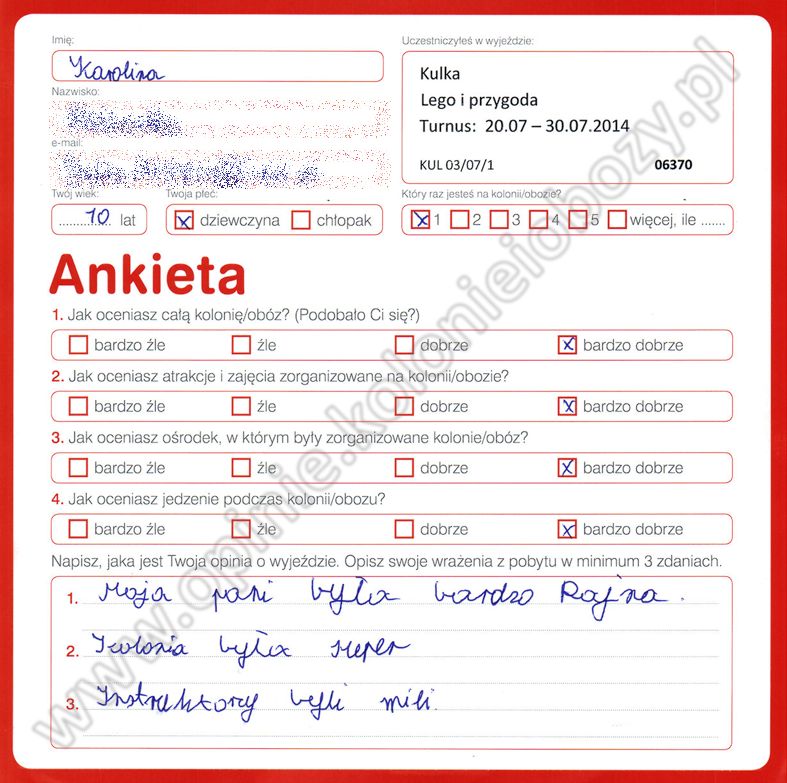 Imię:
Uczestniczyłeś w wyjeździe:
Karolina
Kulka
Lego i przygoda
Turnus: 20.07 – 30.07.2014
KUL 03/07/1 06370
Nazwisko:
e-mail:
Twój wiek:
Twoja płeć:
Który raz jesteś na kolonii/obozie?
10 lat
x dziewczyna chłopak
x 1 2 3 4 5 więcej, ile .......
Ankieta
1. Jak oceniasz całą kolonię/obóz? (Podobało Ci się?)
bardzo źle źle dobrze x bardzo dobrze
2. Jak oceniasz atrakcje i zajęcia zorganizowane na kolonii/obozie?
bardzo źle źle dobrze x bardzo dobrze
3. Jak oceniasz ośrodek, w którym były zorganizowane kolonie/obóz?
bardzo źle źle dobrze x bardzo dobrze
4. Jak oceniasz jedzenie podczas kolonii/obozu?
bardzo źle źle dobrze x bardzo dobrze
Napisz, jaka jest Twoja opinia o wyjeździe. Opisz swoje wrażenia z pobytu w minimum 3 zdaniach.
1. Moja pani była bardzo Fajna.
2. Kolonia była super
3. Instruktorzy byli mili.
www.opinie.kolonieiobozy.pl